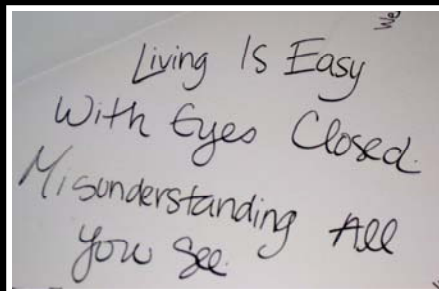 We
Living Is Easy
With Eyes Closed.
Misunderstanding All
You See.